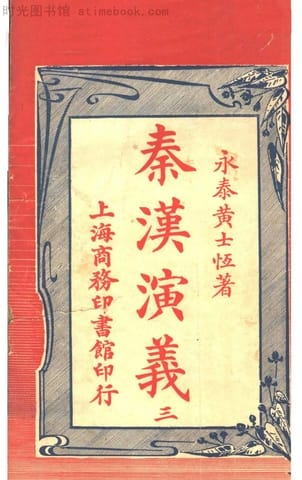 时光图书馆 atimebook.com
永泰黃士恆著
秦漢演義 三
上海商務印書館印行